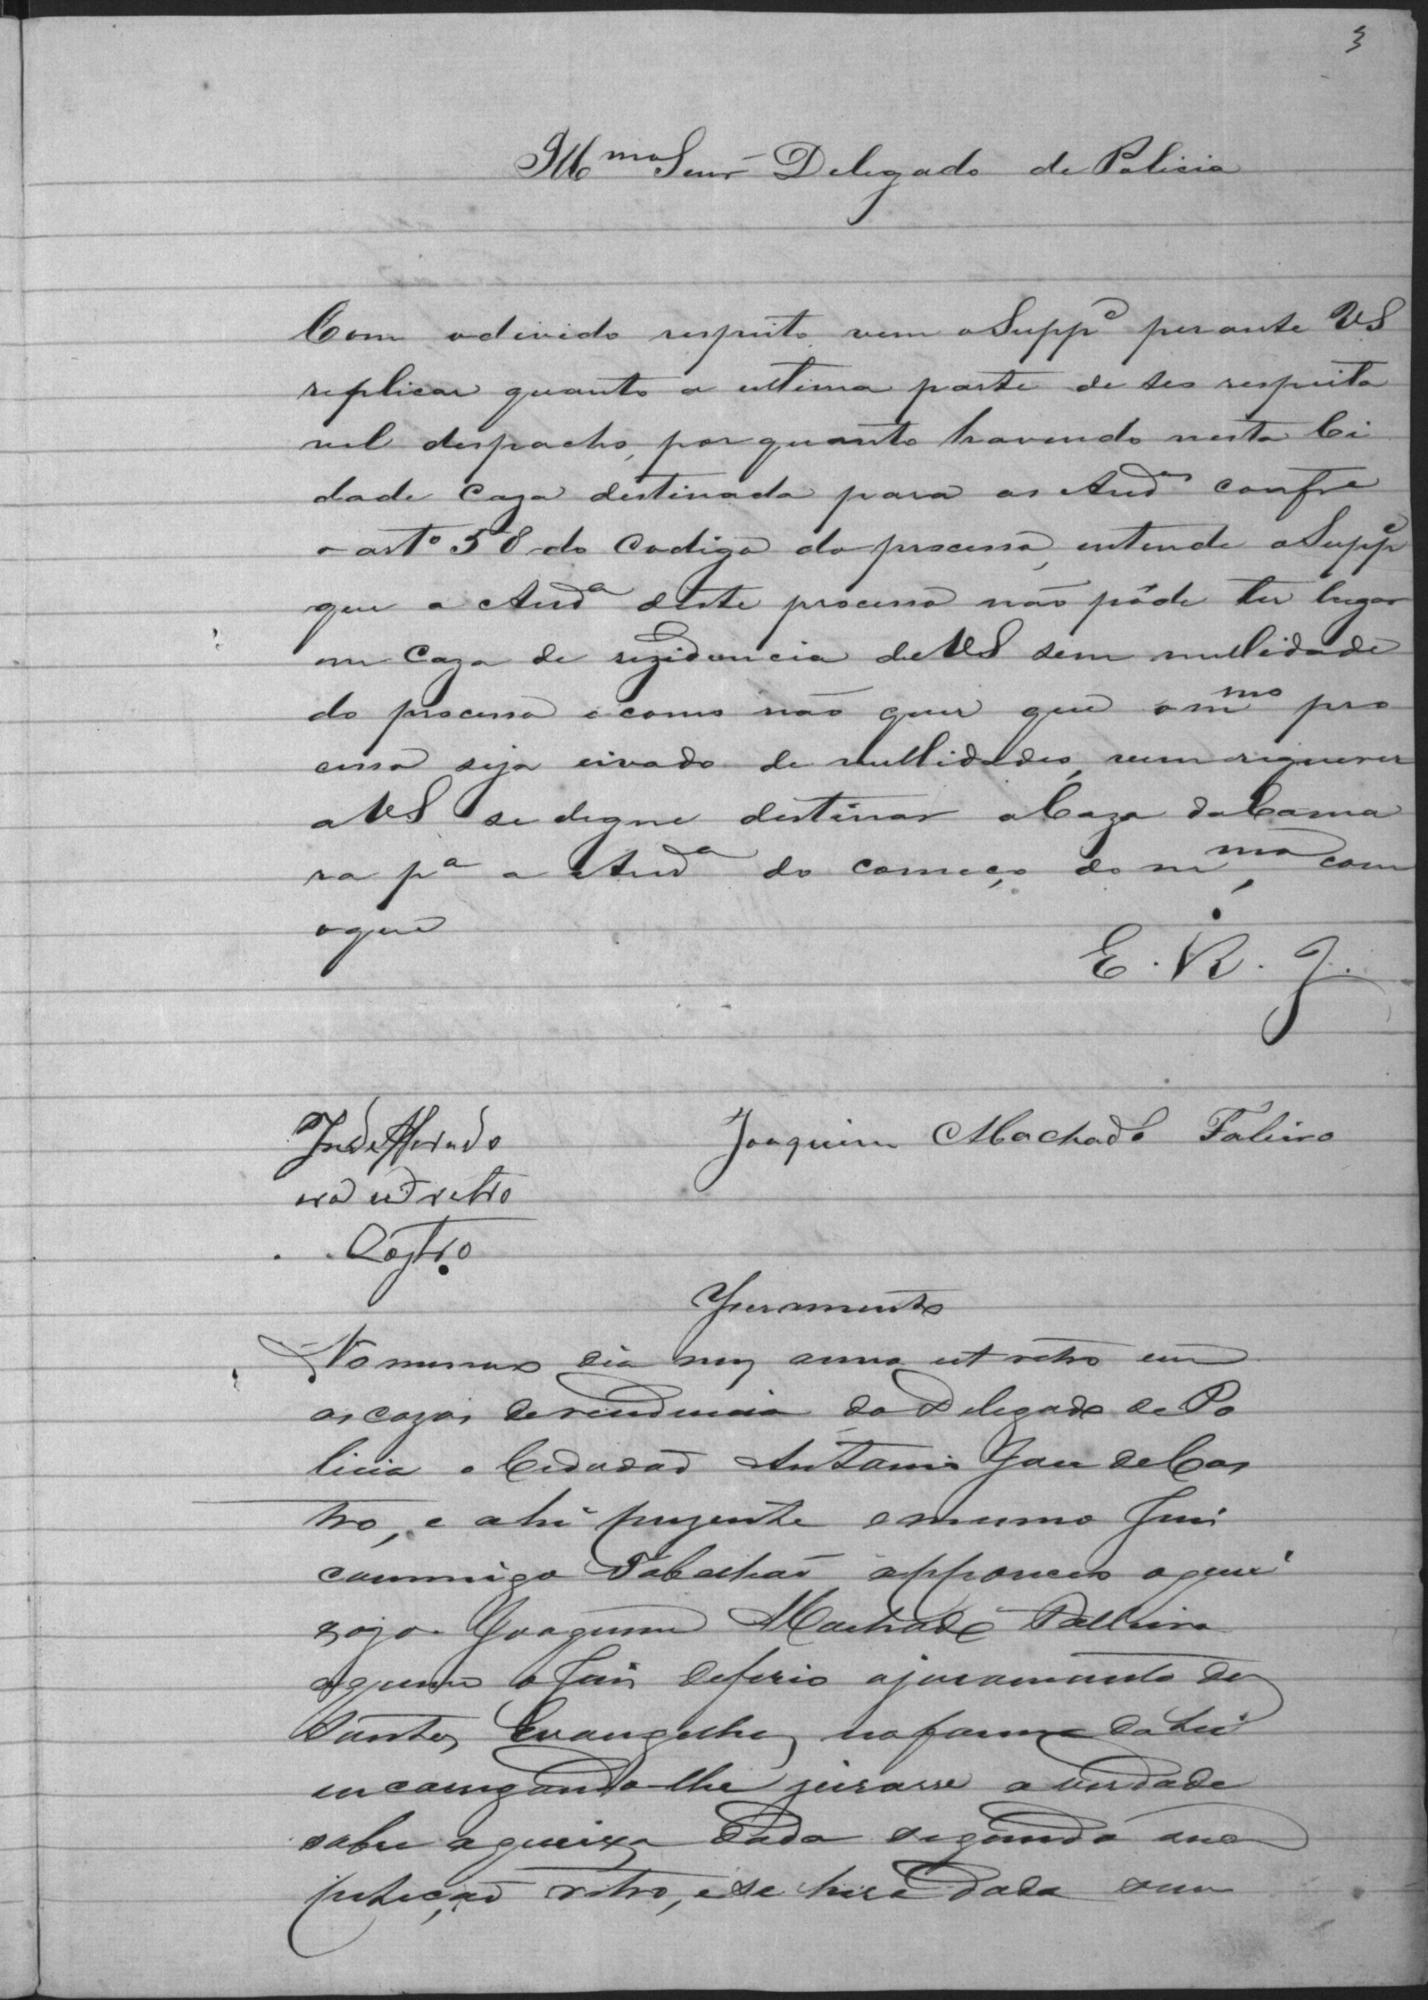 3
Illmo Senr Delegado de Policia
Com o divido respeito vem o Suppe perante VS
replicar quanto a ultima parte de seo respeita
vel despacho, por quanto havendo nesta Ci
dade Caza destinada para as Audas confre
o arto 58 do Codigo do processo, entende o Suppe
que a Auda deste processo não póde ter lugar
em Caza de rezidencia de VS sem nullidade
do processo e como não quer que o mmo pro
cesso seja eivado de nullidades, vem riquerer
a VS se digne destinar a Caza da Cama
ra pa a Auda do começo do mmo, com
o que
E. R. J.
Joaquim Machado Faleiro
Indefferido
era ut retro
Castro
Juramento
No mesmo dia mez anno ut retro em
as cazas de rendencia do Delegado de Po
licia o Cidadão Antonio José de Cas
tro, e ahi prezente o mesmo Juis
commigo Tabelião appareceo o quei
zozo Joaquim Machado Falleiro
a quem o Juis deferio o juramento dos
Santos Evangelhos na forma da Lei
encarregando-lhe jurasse a verdade
sobre a queixa dada segundo sua
petição retro, e se hera dada sem